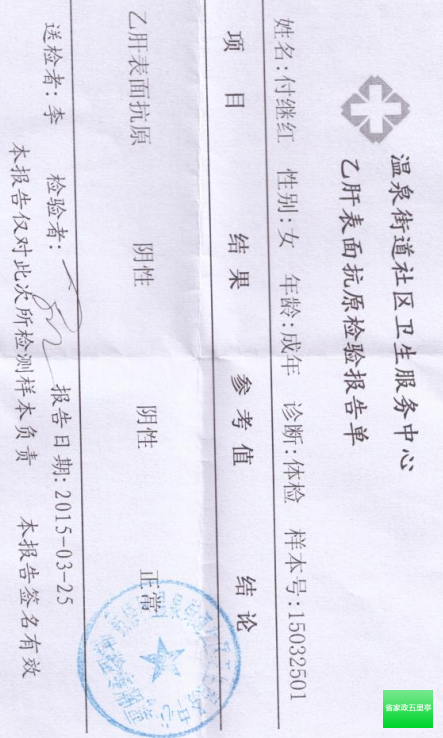 温泉街道社区卫生服务中心
乙肝表面抗原检验报告单
姓名:付继红 性别:女 年龄:成年 诊断:体检 样本号:15032501
项目 结果 参考值 结论
乙肝表面抗原 阴性 阴性 正常
送检者:李 检验者: 报告日期:2015-03-25
本报告仅对此次所检测样本负责 本报告签名有效
省家政五里亭